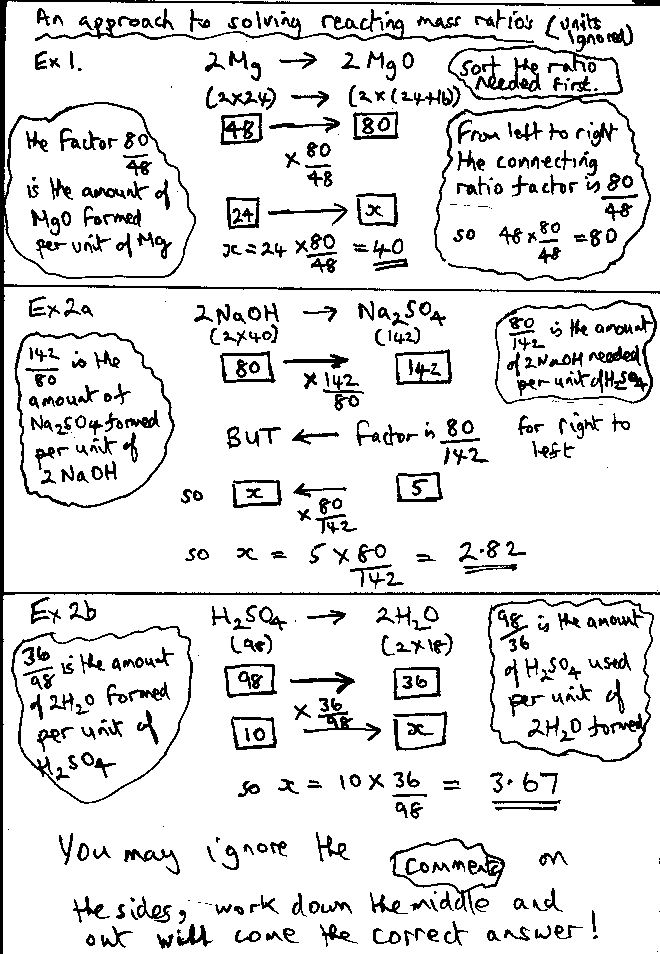 An approach to solving reacting mass ratio's (units ignored)
Ex 1.
2Mg → 2MgO
(2×24) → (2×(24+16))
Sort the ratio
needed first.
48 → 80
× 80/48
the factor 80/48
is the amount of
MgO formed
per unit of Mg
From left to right
the connecting
ratio factor is 80/48
so 48 × 80/48 = 80
24 → x
x = 24 × 80/48 = 40
Ex 2a
2NaOH → Na₂SO₄
(2×40) (142)
80 → 142
× 142/80
142/80 is the
amount of
Na₂SO₄ formed
per unit of
2NaOH
80/142 is the amount
of 2NaOH needed
per unit of H₂SO₄
BUT ← factor is 80/142
for right to
left
so x ← 5
× 80/142
so x = 5 × 80/142 = 2.82
Ex 2b
H₂SO₄ → 2H₂O
(98) (2×18)
98 → 36
× 36/98
10 → x
36/98 is the amount
of 2H₂O formed
per unit of
H₂SO₄
98/36 is the amount
of H₂SO₄ used
per unit of
2H₂O formed
so x = 10 × 36/98 = 3.67
You may ignore the comments on
the sides, work down the middle and
out will come the correct answer!